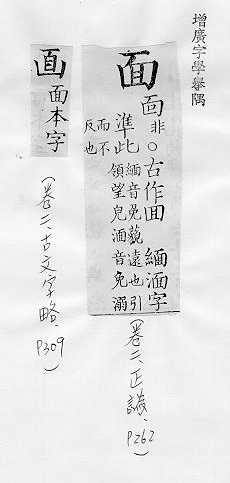 增廣字學舉隅
面
靣非○古作囬 緬湎字
準此
緬音免藐遠也引
領望皃湎音免溺
而不
反也
(卷二、正譌、P262)
面本字
(卷二、古文字略、P309)